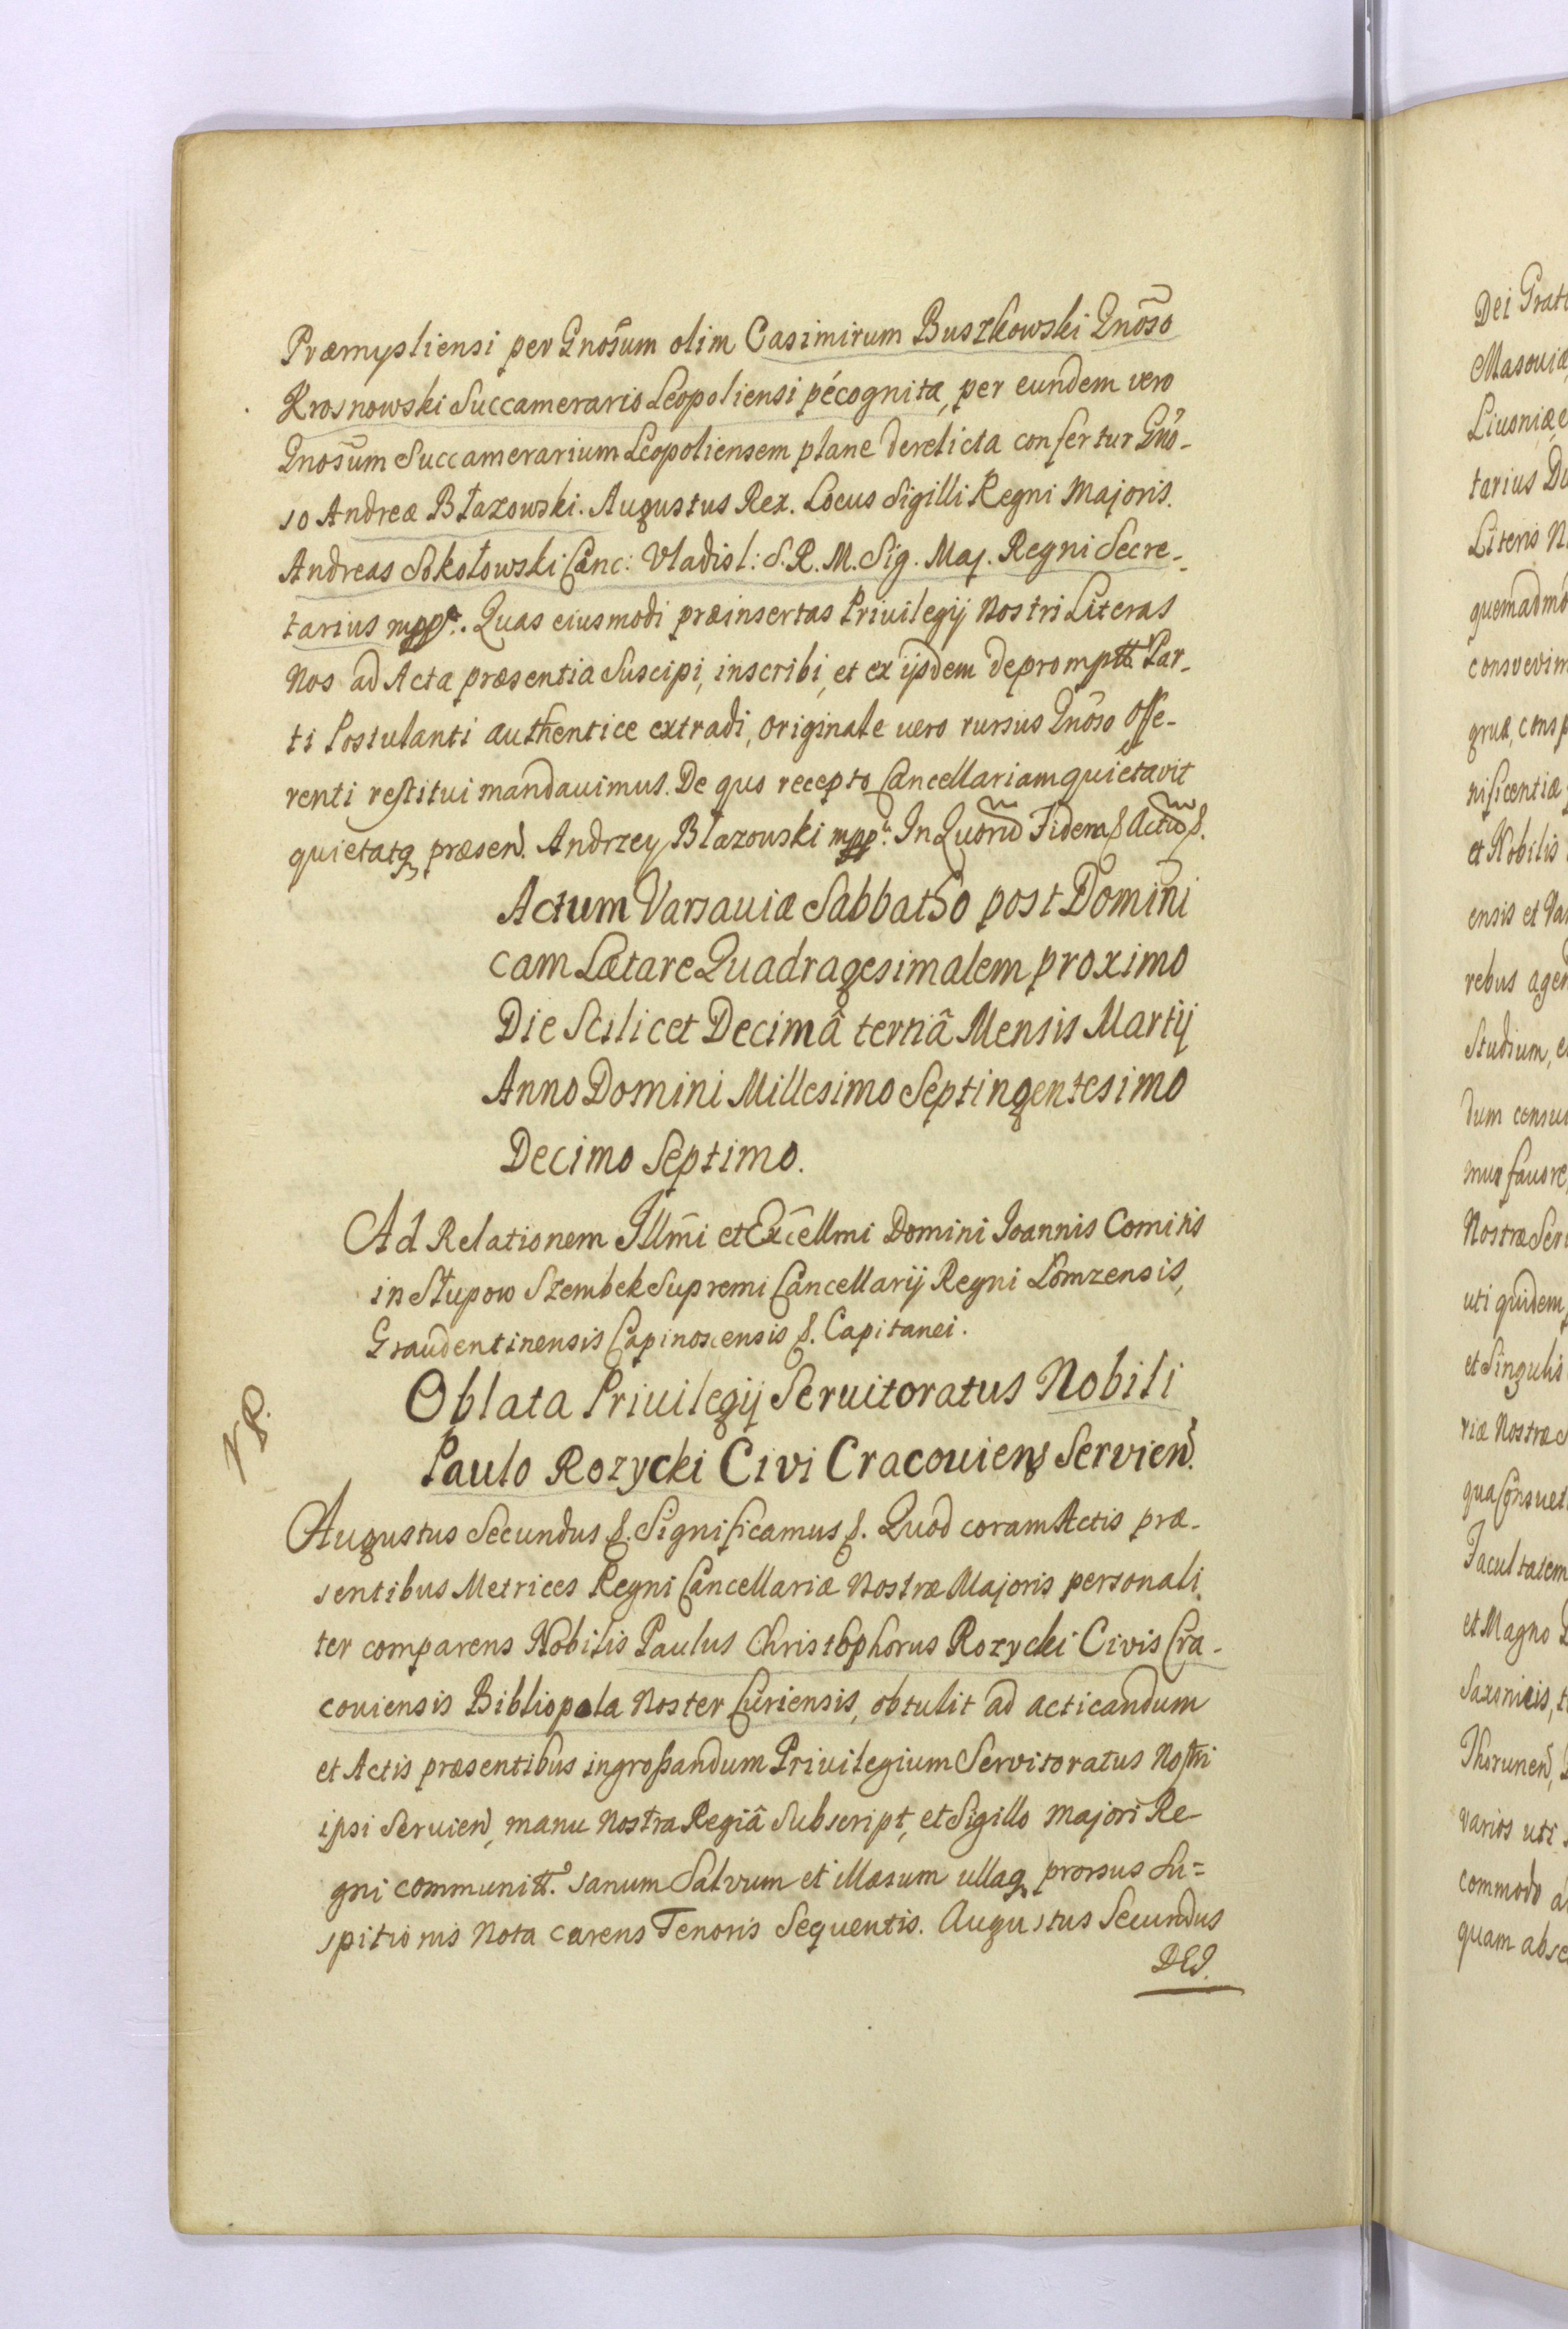 Præmysliensi per Gnosum olim Casimirum Buszkowski Gnoso
Krosnowski Succamerario Leopoliensi pécognita, per eundem vero
Gnosum Succamerarium Leopoliensem plane derelicta confertur Gno-
so Andreæ Błazowski. Augustus Rex. Locus Sigilli Regni Majoris.
Andreas Sokołowski Canc: Vladisl: S. R. M. Sig. Maj. Regni Secre-
tarius mpp. Quas eiusmodi præinsertas Priuilegij Nostri Literas
Nos ad Acta præsentia Suscipi, inscribi, et ex ijsdem depromptt. Par-
ti Postulanti authentice extradi, originale vero rursus Gnoso Offe-
renti restitui mandauimus. De quo recepto Cancellariam quietavit
quietatq præsen. Andrzey Błazowski mpp. In Quorũ Fidem &. Actũ &.
Actum Varsauiæ Sabbatho post Domini
cam Lætare Quadragesimalem proximo
Die Scilicet Decimâ tertiâ Mensis Martij
Anno Domini Millesimo Septingentesimo
Decimo Septimo.
Ad Relationem Illmi et Excellmi Domini Ioannis Comitis
in Słupow Szembek Supremi Cancellarij Regni Łomzensis,
Graudentinensis Capinoscensis &. Capitanei.
Oblata Priuilegij Seruitoratus Nobili
Paulo Rozycki Civi Cracouiens Servien.
Augustus Secundus &. Significamus &. Quod coram Actis præ-
sentibus Metrices Regni Cancellariæ Nostræ Majoris personali
ter comparens Nobilis Paulus Christophorus Rozycki Civis Cra-
couiensis Bibliopola Noster Curiensis, obtulit ad acticandum
et Actis præsentibus ingrossandum Priuilegium Servitoratus Nostri
ipsi Seruien, manu Nostra Regiâ Subscript, et Sigillo majori Re
gni communitt. sanum Salvum et illæsum ullaq prorsus Su=
spitionis Nota carens Tenoris Sequentis. Augustus Secundus
DEI.
Dei Grati
Masouiæ
Liuoniæ
tarius Du
Literis N
quemadmo
consvevim
gruæ, consp
nificentiæ
et Nobilis
ensis et Va
rebus agen
Studium, e
dum consu
mur fauore
Nostræ Ser
uti quidem
et Singulis
riæ Nostræ
qua Consuet
Facultatem
et Magno
Saxonicis, t
Thorunen,
varios uti
commodo a
quam abse